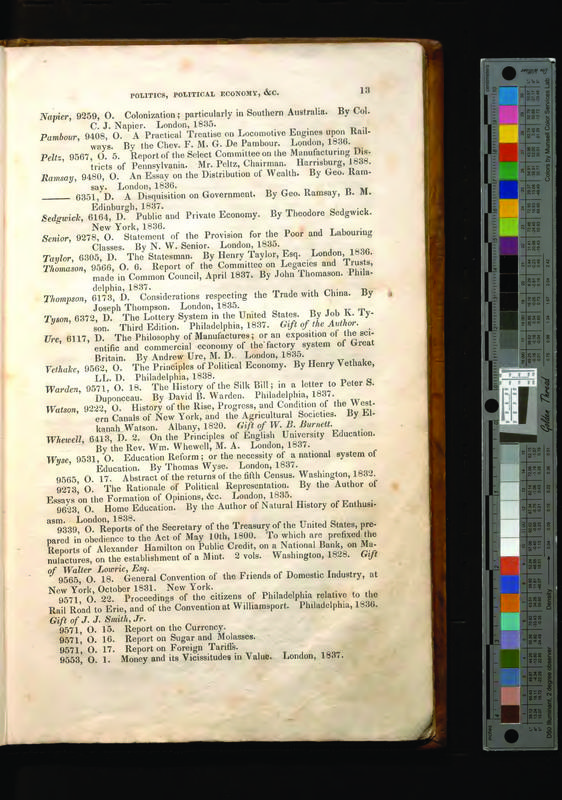 POLITICS, POLITICAL ECONOMY, &C. 13
Napier, 9259, O. Colonization; particularly in Southern Australia. By Col.
C. J. Napier. London, 1835.
Pambour, 9408, O. A Practical Treatise on Locomotive Engines upon Rail-
ways. By the Chev. F. M. G. De Pambour. London, 1836.
Peltz, 9567, O. 5. Report of the Select Committee on the Manufacturing Dis-
tricts of Pennsylvania. Mr. Peltz, Chairman. Harrisburg, 1838.
Ramsay, 9480, O. An Essay on the Distribution of Wealth. By Geo. Ram-
say. London, 1836.
—— 6351, D. A Disquisition on Government. By Geo. Ramsay, B. M.
Edinburgh, 1837.
Sedgwick, 6164, D. Public and Private Economy. By Theodore Sedgwick.
New York, 1836.
Senior, 9278, O. Statement of the Provision for the Poor and Labouring
Classes. By N. W. Senior. London, 1835.
Taylor, 6305, D. The Statesman. By Henry Taylor, Esq. London, 1836.
Thomason, 9566, O. 6. Report of the Committee on Legacies and Trusts,
made in Common Council, April 1837. By John Thomason. Phila-
delphia, 1837.
Thompson, 6173, D. Considerations respecting the Trade with China. By
Joseph Thompson. London, 1835.
Tyson, 6372, D. The Lottery System in the United States. By Job K. Ty-
son. Third Edition. Philadelphia, 1837. Gift of the Author.
Ure, 6117, D. The Philosophy of Manufactures; or an exposition of the sci-
entific and commercial economy of the factory system of Great
Britain. By Andrew Ure, M. D. London, 1835.
Vethake, 9562, O. The Principles of Political Economy. By Henry Vethake,
LL. D. Philadelphia, 1838.
Warden, 9571, O. 18. The History of the Silk Bill; in a letter to Peter S.
Duponceau. By David B. Warden. Philadelphia, 1837.
Watson, 9222, O. History of the Rise, Progress, and Condition of the West-
ern Canals of New York, and the Agricultural Societies. By El-
kanah Watson. Albany, 1820. Gift of W. B. Burnett.
Whewell, 6413, D. 2. On the Principles of English University Education.
By the Rev. Wm. Whewell, M. A. London, 1837.
Wyse, 9531, O. Education Reform; or the necessity of a national system of
Education. By Thomas Wyse. London, 1837.
9565, O. 17. Abstract of the returns of the fifth Census. Washington, 1832.
9273, O. The Rationale of Political Representation. By the Author of
Essays on the Formation of Opinions, &c. London, 1835.
9623, O. Home Education. By the Author of Natural History of Enthusi-
asm. London, 1838.
9339, O. Reports of the Secretary of the Treasury of the United States, pre-
pared in obedience to the Act of May 10th, 1800. To which are prefixed the
Reports of Alexander Hamilton on Public Credit, on a National Bank, on Ma-
nufactures, on the establishment of a Mint. 2 vols. Washington, 1828. Gift
of Walter Lowrie, Esq.
9565, O. 18. General Convention of the Friends of Domestic Industry, at
New York, October 1831. New York.
9571, O. 22. Proceedings of the citizens of Philadelphia relative to the
Rail Road to Erie, and of the Convention at Williamsport. Philadelphia, 1836.
Gift of J. J. Smith, Jr.
9571, O. 15. Report on the Currency.
9571, O. 16. Report on Sugar and Molasses.
9571, O. 17. Report on Foreign Tariffs.
9553, O. 1. Money and its Vicissitudes in Value. London, 1837.
Colors by Munsell Color Services Lab
Golden Thread
Density
D50 Illuminant, 2 degree observer